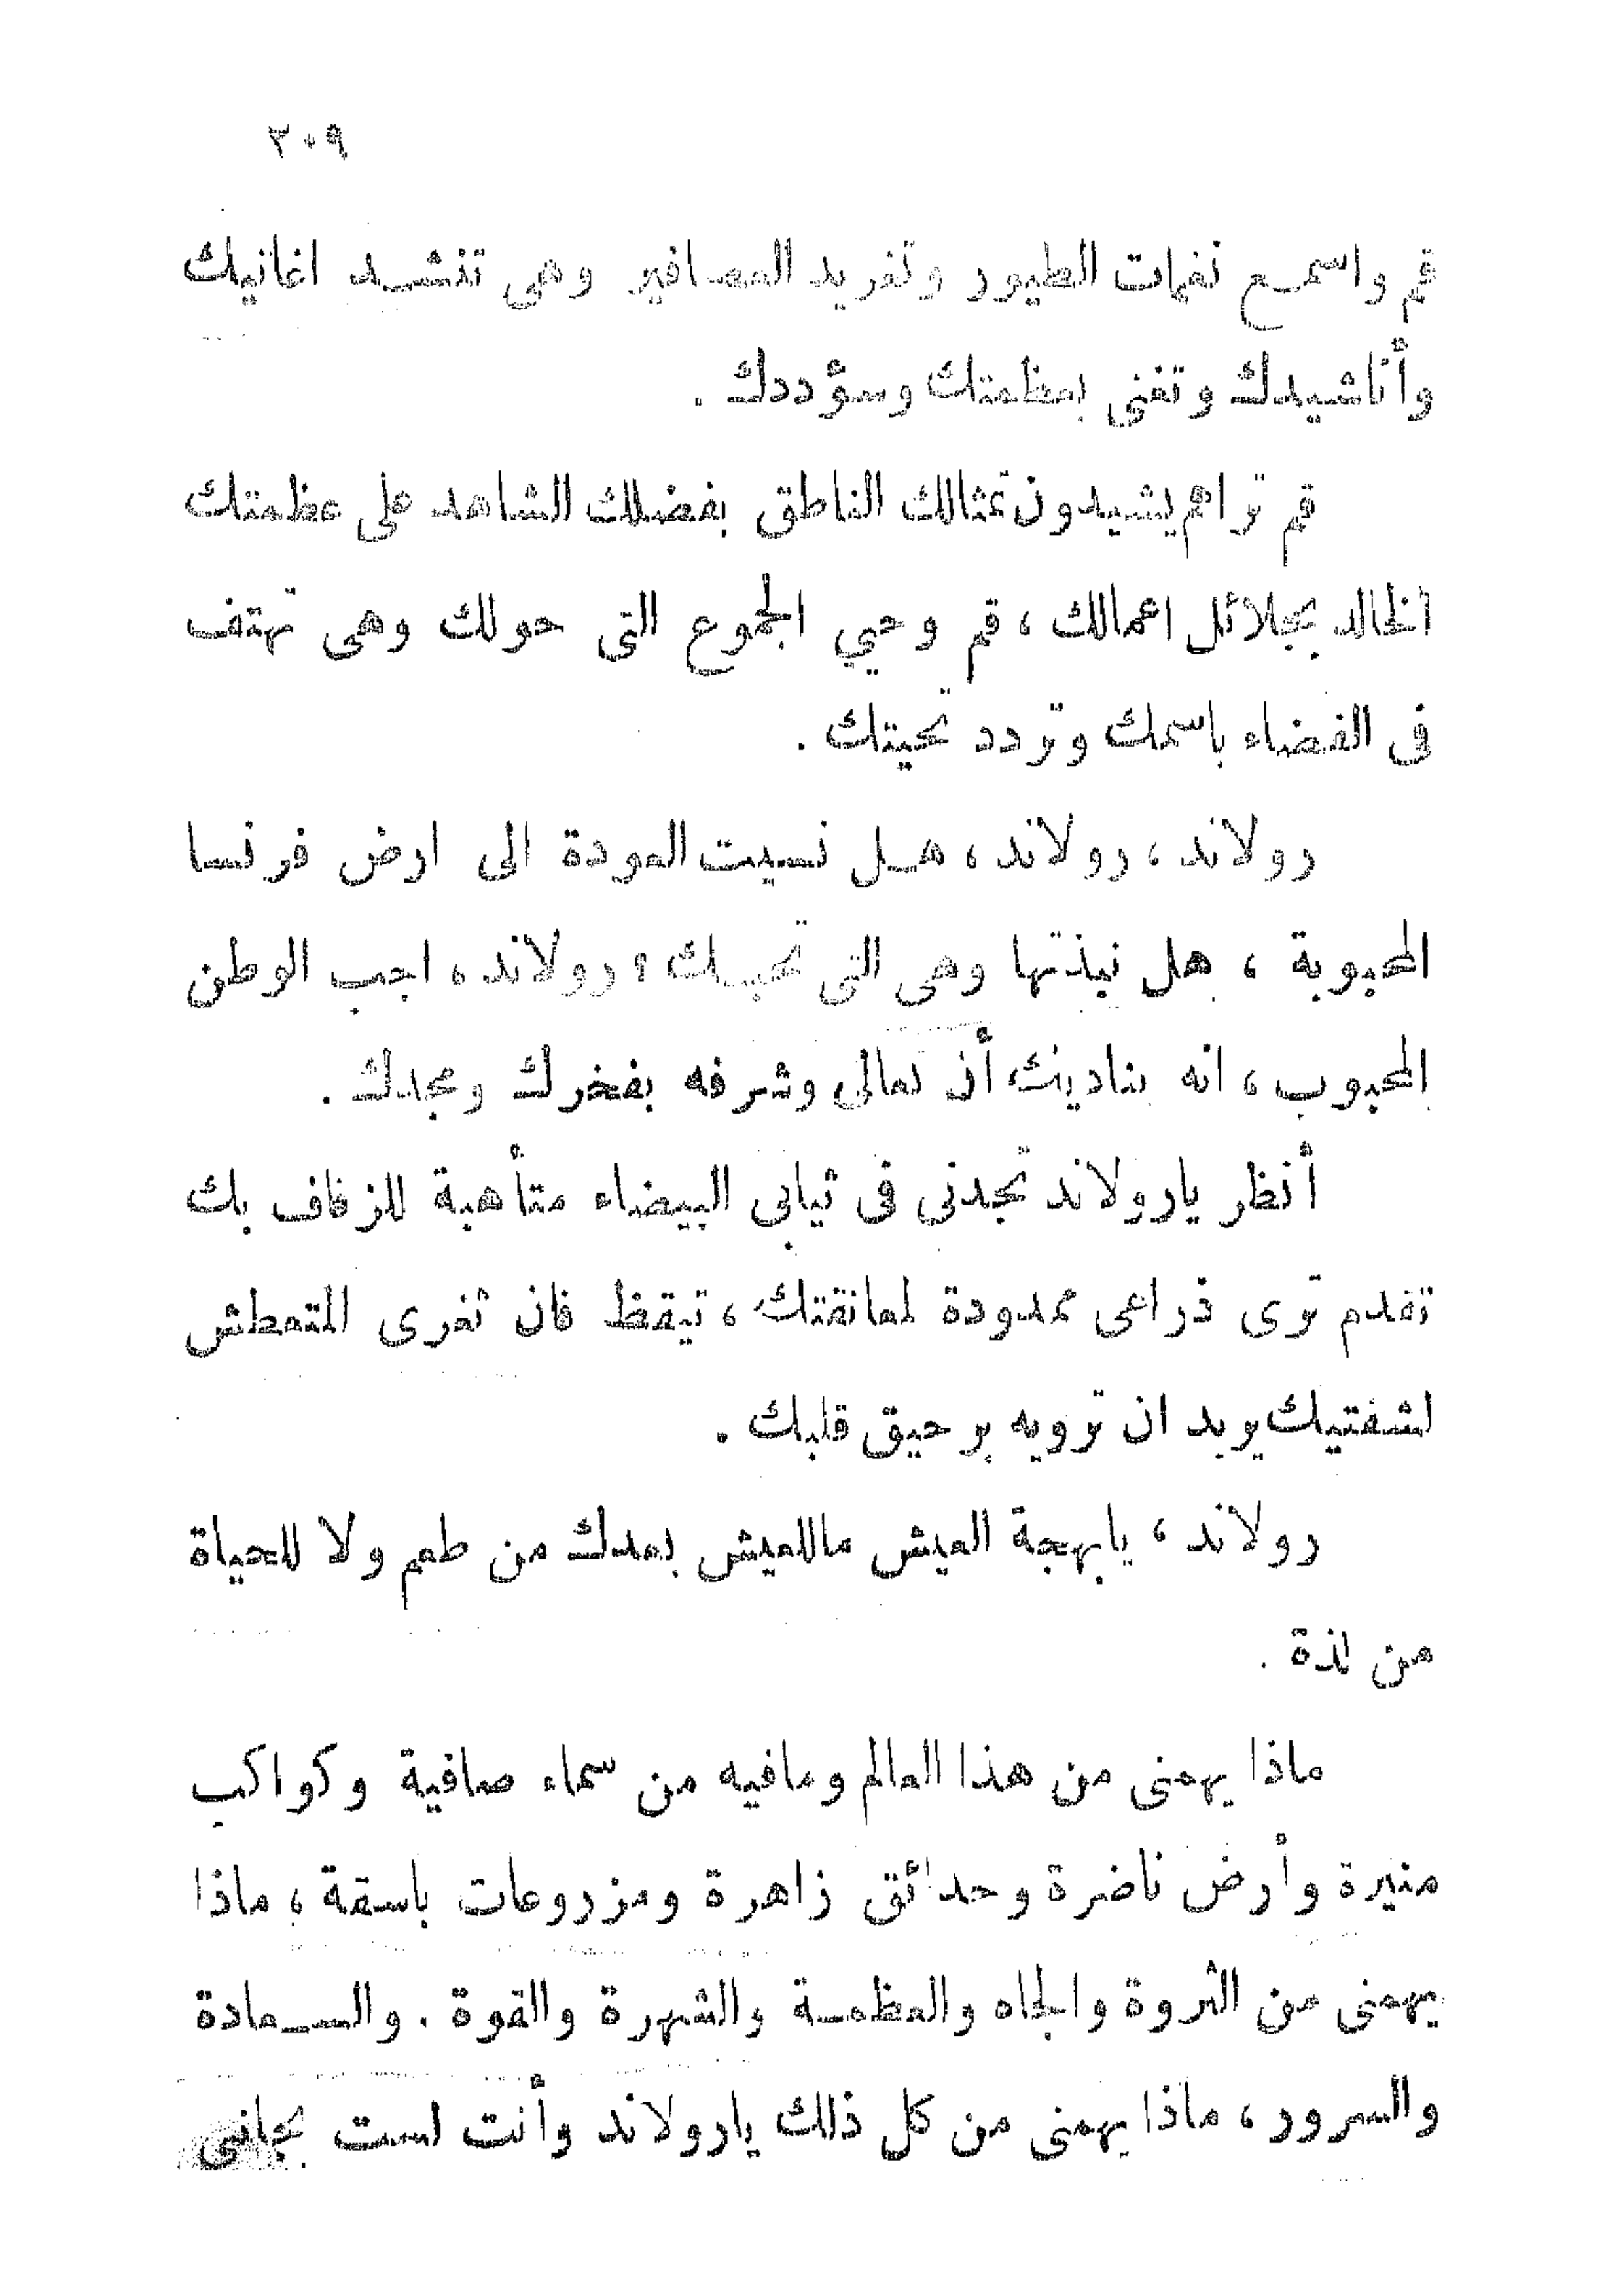 ٣٠٩
قم واسمع نغمات الطيور وتغريد العصافير وهى تنشد اغانيك
وأناشيدك وتغنى بعظمتك وسؤددك .
قم تراهم يشيدون تمثالك الناطق بفضلك الشاهد على عظمتك
الخالد بجلائل اعمالك ، قم وحيي الجموع التى حولك وهى تهتف
فى الفضاء باسمك وتردد تحيتك .
رولاند ، رولاند ، هل نسيت العودة الى ارض فرنسا
المحبوبة ، هل نبذتها وهى التى تحبك ؟ رولاند ، اجب الوطن
المحبوب ، انه يناديك أن تعالى وشرفه بفخرك ومجدك .
أنظر يارولاند تجدنى فى ثيابي البيضاء متأهبة للزفاف بك
تقدم ترى ذراعى ممدودة لمعانقتك ، تيقظ فان ثغرى المتعطش
لشفتيك يريد ان ترويه برحيق قلبك .
رولاند ، يابهجة العيش ماللعيش بعدك من طعم ولا للحياة
من لذة .
ماذا يهمنى من هذا العالم ومافيه من سماء صافية وكواكب
منيرة وأرض ناضرة وحدائق زاهرة ومزروعات باسقة ، ماذا
يهمنى من الثروة والجاه والعظمة والشهرة والقوة . والسعادة
والسرور ، ماذا يهمنى من كل ذلك يارولاند وأنت لست بجانبى